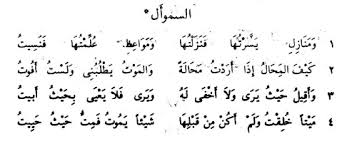 السموأل
١ وَمَنَازِلٍ يَسَّرْتُهَا فَنَزَلْتُهَا وَمَوَاعِظٍ عُلِّمْتُهَا فَنَسِيتُ
٢ كَيْفَ الْمِحَالُ إِذَا أَرَدْتُ مَحَالَةً وَالمَوْتُ يَطْلُبُنِي وَلَسْتُ أَفُوتُ
٣ وَأَقِيلُ حَيْثُ يَرَى وَلَا أَخْفَى لَهُ وَيَرَى فَلَا يَعْيَى بِحَيْثُ أَبِيتُ
٤ مَيْتاً خُلِقْتُ وَلَمْ أَكُنْ مِنْ قَبْلِهَا شَيْئاً يَمُوتُ فَمِتُّ حَيْثُ حَيِيتُ